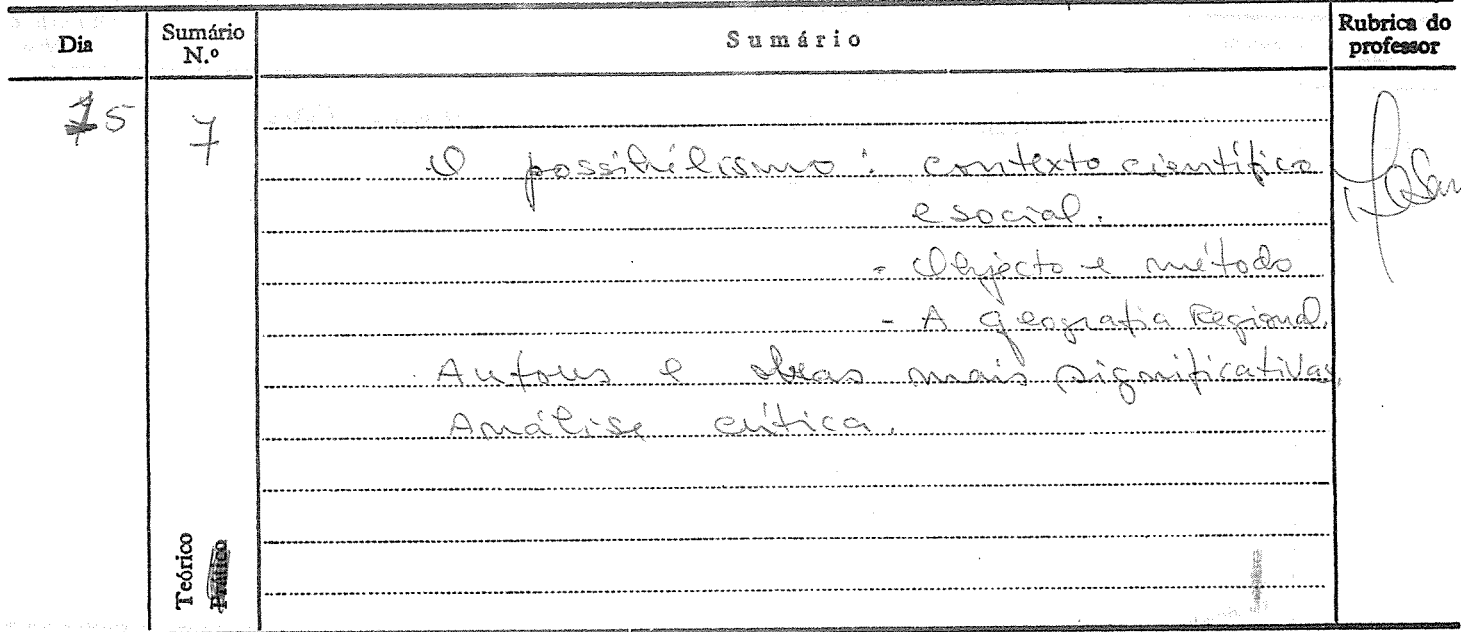 Dia
Sumário N.º
Sumário
Rubrica do professor
15
7
O possibilismo: contexto científico
e social.
- Objecto e método
- A geografia Regional.
Autores e obras mais significativas.
Análise crítica.
Teórico
Prático